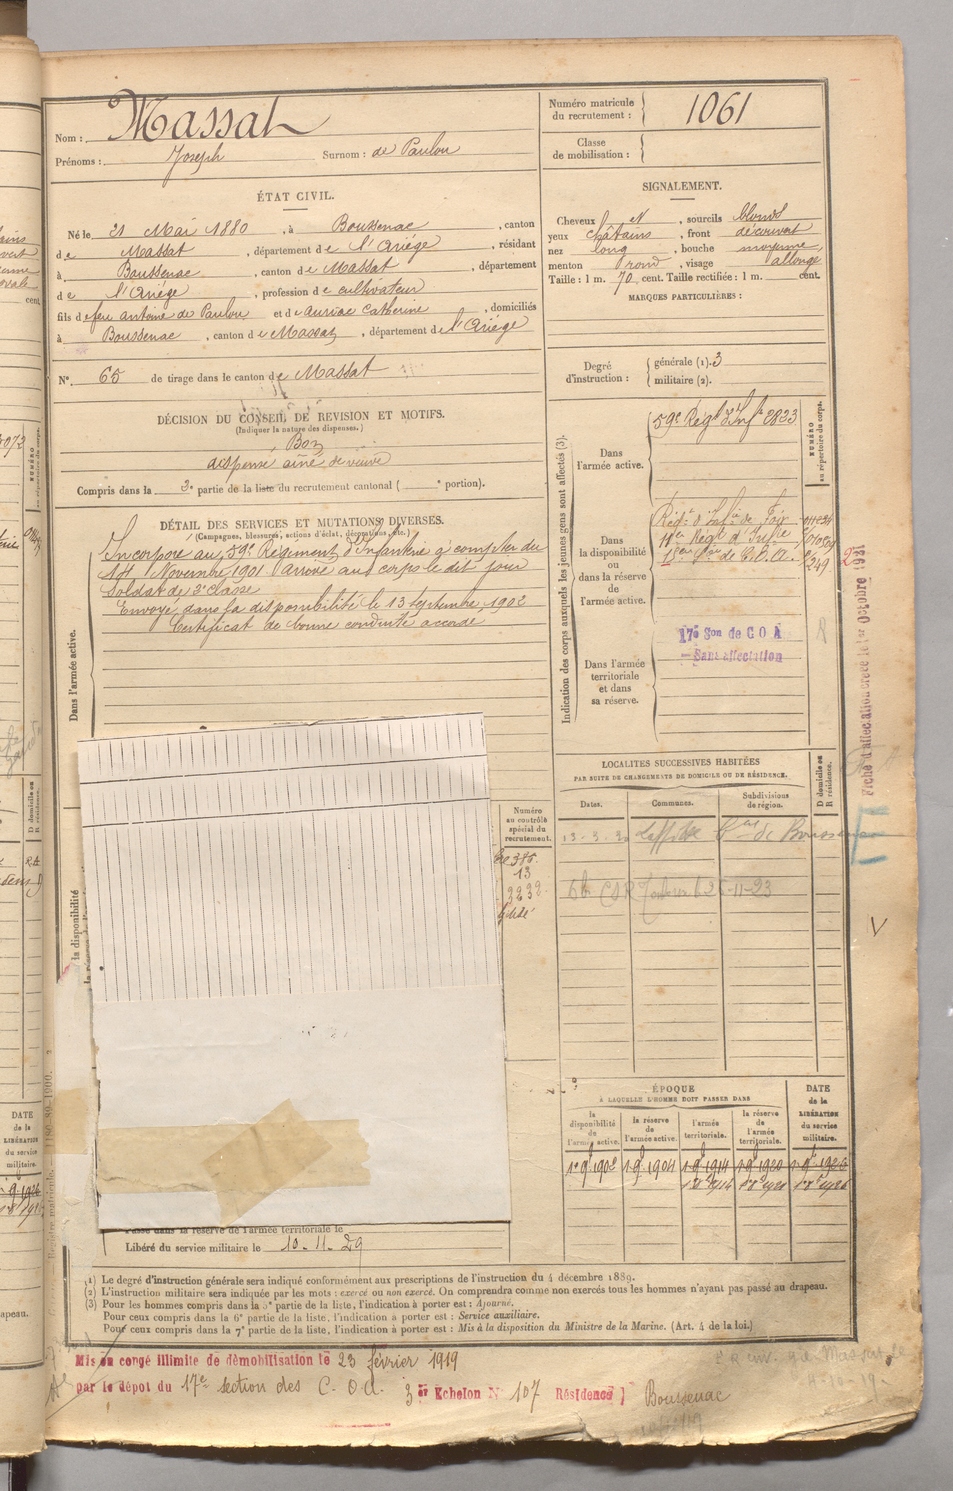 Nom : Massat
Prénoms : Joseph Surnom : de Paulou
Numéro matricule du recrutement : 1061
Classe de mobilisation :
ÉTAT CIVIL.
Né le 21 Mai 1880, à Boussenac, canton
de Massat, département de l'Ariége, résidant
à Boussenac, canton de Massat, département
de l'Ariége, profession de cultivateur
fils de feu antoine de Paulou et de auriac Catherine, domiciliés
à Boussenac, canton de Massat, département de l'Ariége
N° 65 de tirage dans le canton de Massat
SIGNALEMENT.
Cheveux et, sourcils blonds
yeux châtains, front découvert
nez long, bouche moyenne,
menton rond, visage allongé
Taille : 1 m. 70 cent. Taille rectifiée : 1 m. cent.
MARQUES PARTICULIÈRES :
Degré d'instruction : générale (1). 3
militaire (2).
DÉCISION DU CONSEIL DE REVISION ET MOTIFS.
(Indiquer la nature des dispenses.)
Bon
dispensé aîné de veuve
Compris dans la 3e partie de la liste du recrutement cantonal ( e portion).
DÉTAIL DES SERVICES ET MUTATIONS DIVERSES.
(Campagnes, blessures, actions d'éclat, décorations, etc.)
Dans l'armée active.
Incorporé au 59e Régiment d'Infanterie à compter du
14 Novembre 1901 Arrivé au corps le dit jour
Soldat de 2e classe
Envoyé dans la disponibilité le 13 Septembre 1902
Certificat de bonne conduite accordé
la disponibilité
Numéro
au contrôle
spécial du
recrutement.
13
2232
Passé dans la réserve de l'armée territoriale le
Libéré du service militaire le 10-11-29
Indication des corps auxquels les jeunes gens sont affectés (3).
NUMÉRO
au répertoire du corps.
Dans
l'armée active.
59e Régt d'Infie 2823
Dans
la disponibilité
ou
dans la réserve
de
l'armée active.
Régt d'Infie de Foix
11er Régt d'Infie
249
Dans l'armée
territoriale
et dans
sa réserve.
17e Son de C O A
Sans affectation
Fiche d'affectation créée le 1er Octobre 1931
LOCALITÉS SUCCESSIVES HABITÉES
PAR SUITE DE CHANGEMENTS DE DOMICILE OU DE RÉSIDENCE.
Dates.
Communes.
Subdivisions
de région.
D domicile ou
R résidence.
25-11-23
ÉPOQUE
À LAQUELLE L'HOMME DOIT PASSER DANS
la
disponibilité
de
l'armée active.
la réserve
de
l'armée active.
l'armée
territoriale.
la réserve
de
l'armée
territoriale.
DATE
de la
LIBÉRATION
du service
militaire.
1 9bre 1902
1 9bre 1904
1 9bre 1914
1 9bre 1920
1 9bre 1926
(1) Le degré d'instruction générale sera indiqué conformément aux prescriptions de l'instruction du 4 décembre 1889.
(2) L'instruction militaire sera indiquée par les mots : exercé ou non exercé. On comprendra comme non exercés tous les hommes n'ayant pas passé au drapeau.
(3) Pour les hommes compris dans la 5e partie de la liste, l'indication à porter est : Ajourné.
Pour ceux compris dans la 6e partie de la liste, l'indication à porter est : Service auxiliaire.
Pour ceux compris dans la 7e partie de la liste, l'indication à porter est : Mis à la disposition du Ministre de la Marine. (Art. 4 de la loi.)
Mis en congé illimité de démobilisation le 23 février 1919
par le dépôt du 17e section des C. O. A. 3er Echelon N° 107 Résidence Boussenac